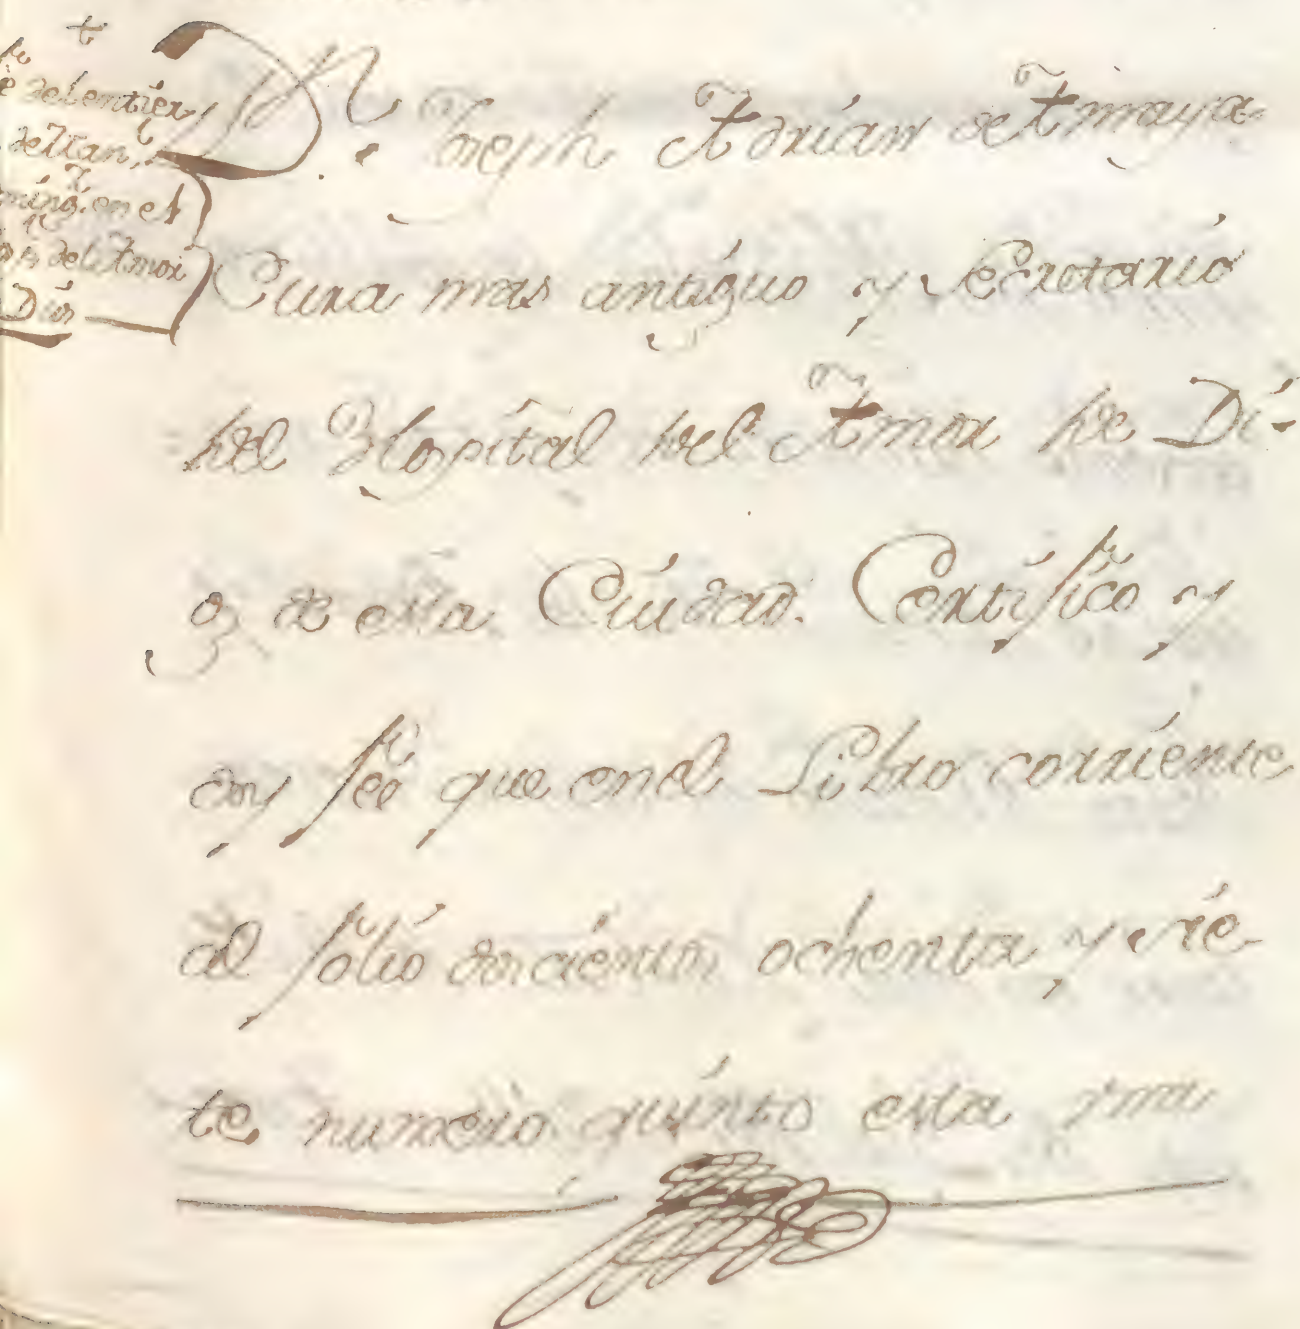 del entier
de San
ming.º en el
del Amor
Dios
Dn. Joseph Adrian de Amaya
Cura mas antiguo y Secretario
del Hospital del Amor de Di-
oz de esta Ciudad. Certifico y
doy feé que en el Libro corriente
al folio doscientos ochenta y sie-
te numero quinto esta una